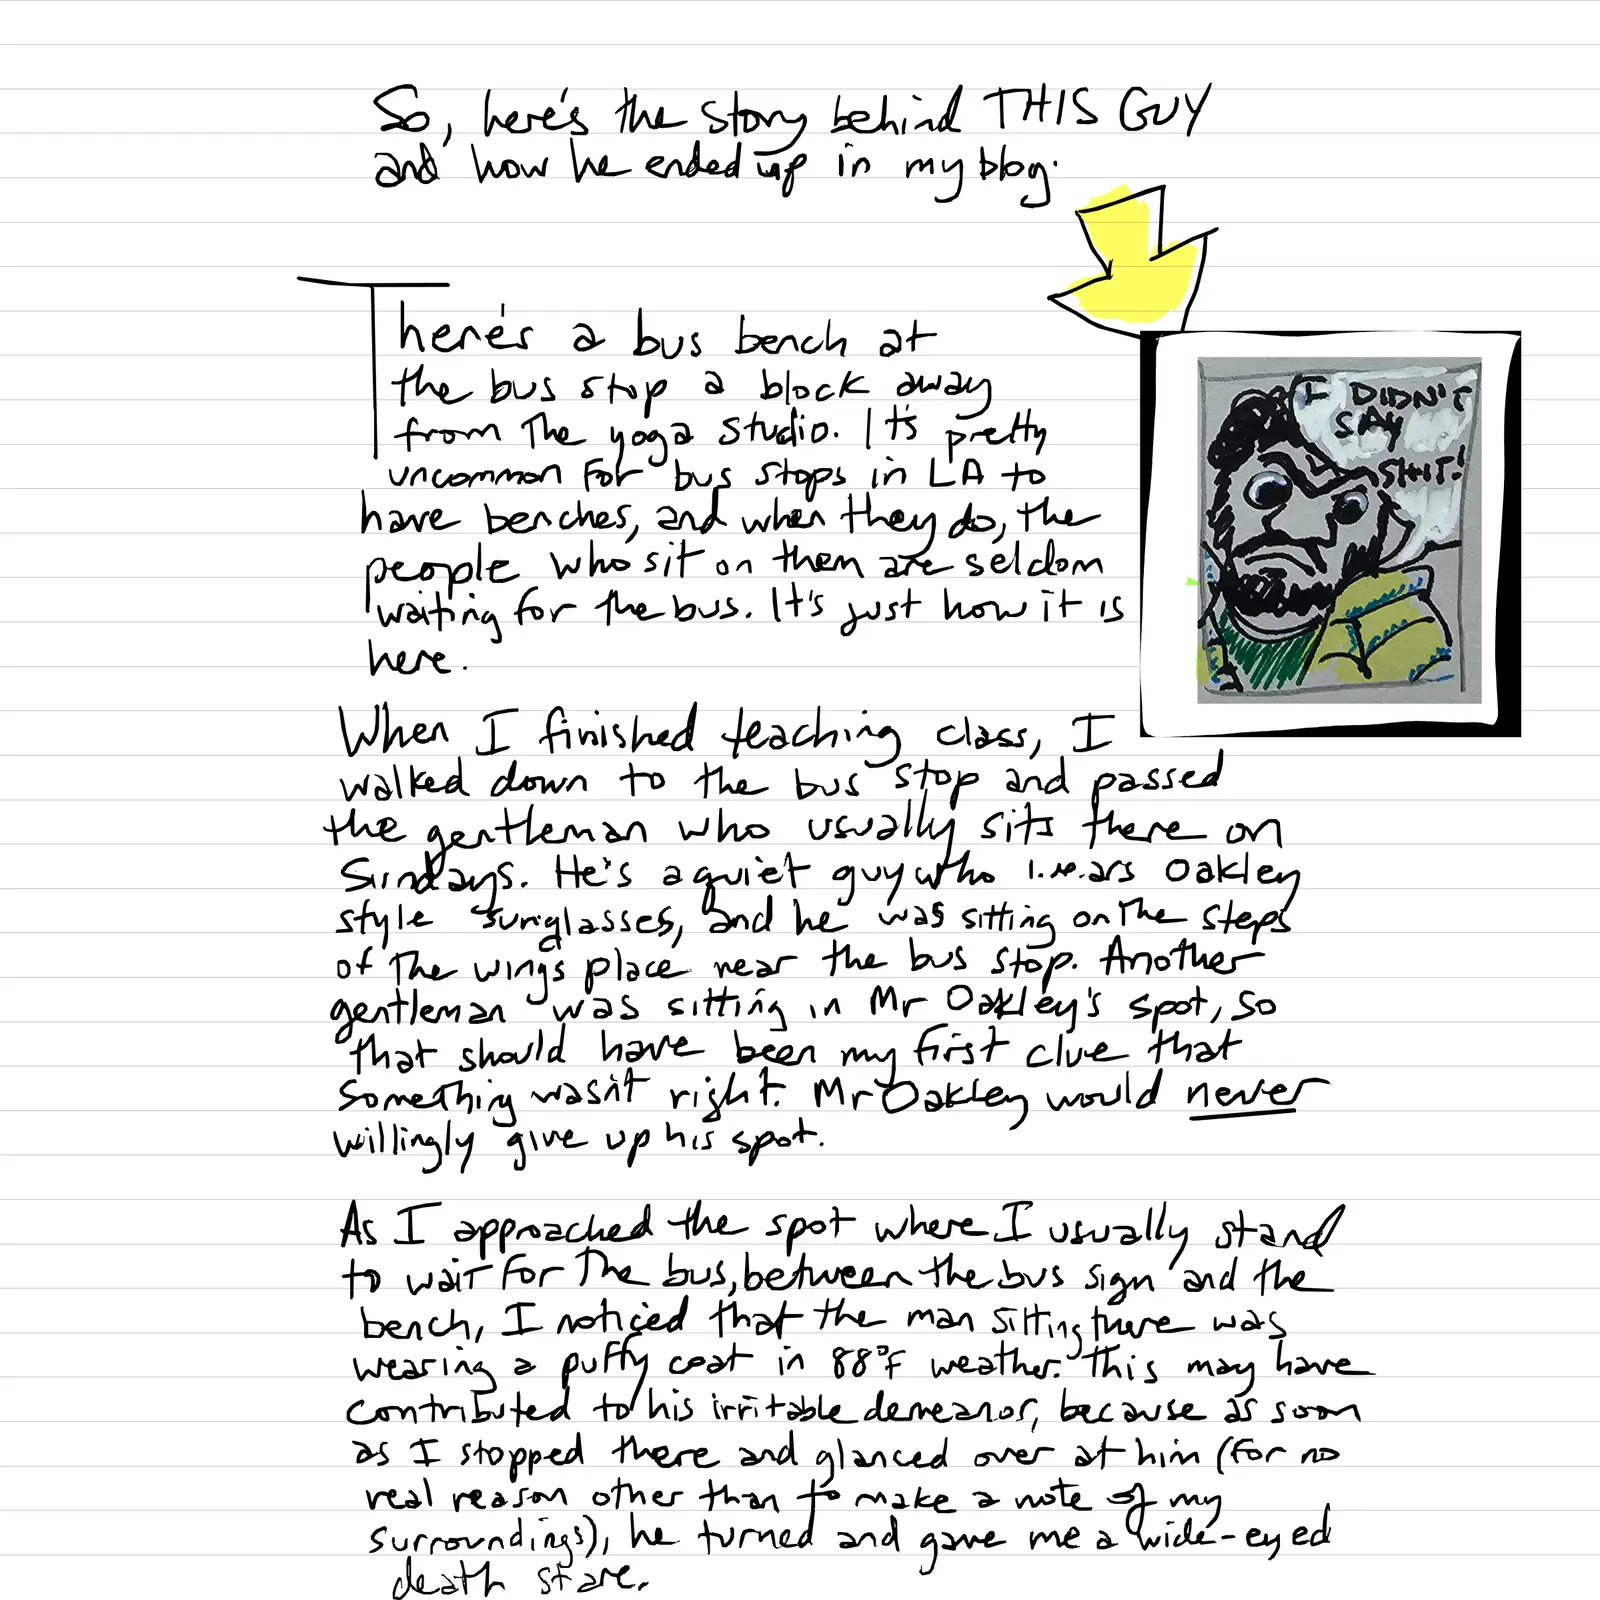 So, here's the story behind THIS GUY
and how he ended up in my blog.
There's a bus bench at
the bus stop a block away
from the yoga studio. It's pretty
uncommon for bus stops in LA to
have benches, and when they do, the
people who sit on them are seldom
waiting for the bus. It's just how it is
here.
I DIDN'T
SAY
SHIT!
When I finished teaching class, I
walked down to the bus stop and passed
the gentleman who usually sits there on
Sundays. He's a quiet guy who wears Oakley
style sunglasses, and he was sitting on the steps
of the wings place near the bus stop. Another
gentleman was sitting in Mr Oakley's spot, so
that should have been my first clue that
something wasn't right. Mr Oakley would never
willingly give up his spot.
As I approached the spot where I usually stand
to wait for the bus, between the bus sign and the
bench, I noticed that the man sitting there was
wearing a puffy coat in 88°F weather. This may have
contributed to his irritable demeanor, because as soon
as I stopped there and glanced over at him (for no
real reason other than to make a note of my
surroundings), he turned and gave me a wide-eyed
death stare.